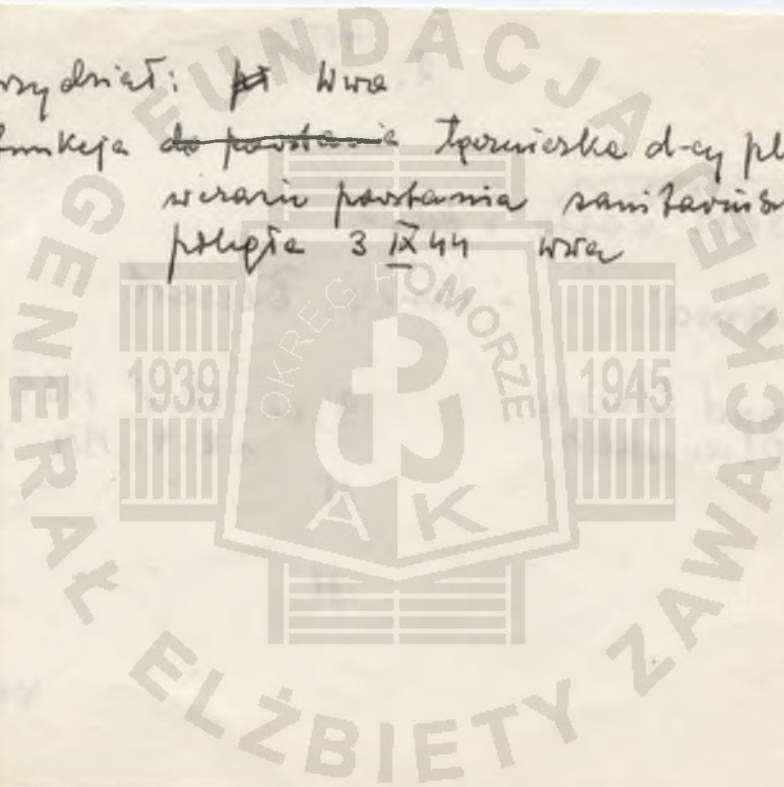 rzydział: Wwa
funkcja do powstania łączniczka d-cy pl
w czasie powstania sanitariusz
poległa 3 IX 44 Wwa
FUNDACJA GENERAŁ ELŻBIETY ZAWACKIEJ
OKRĘG POMORZE
1939 1945
A K